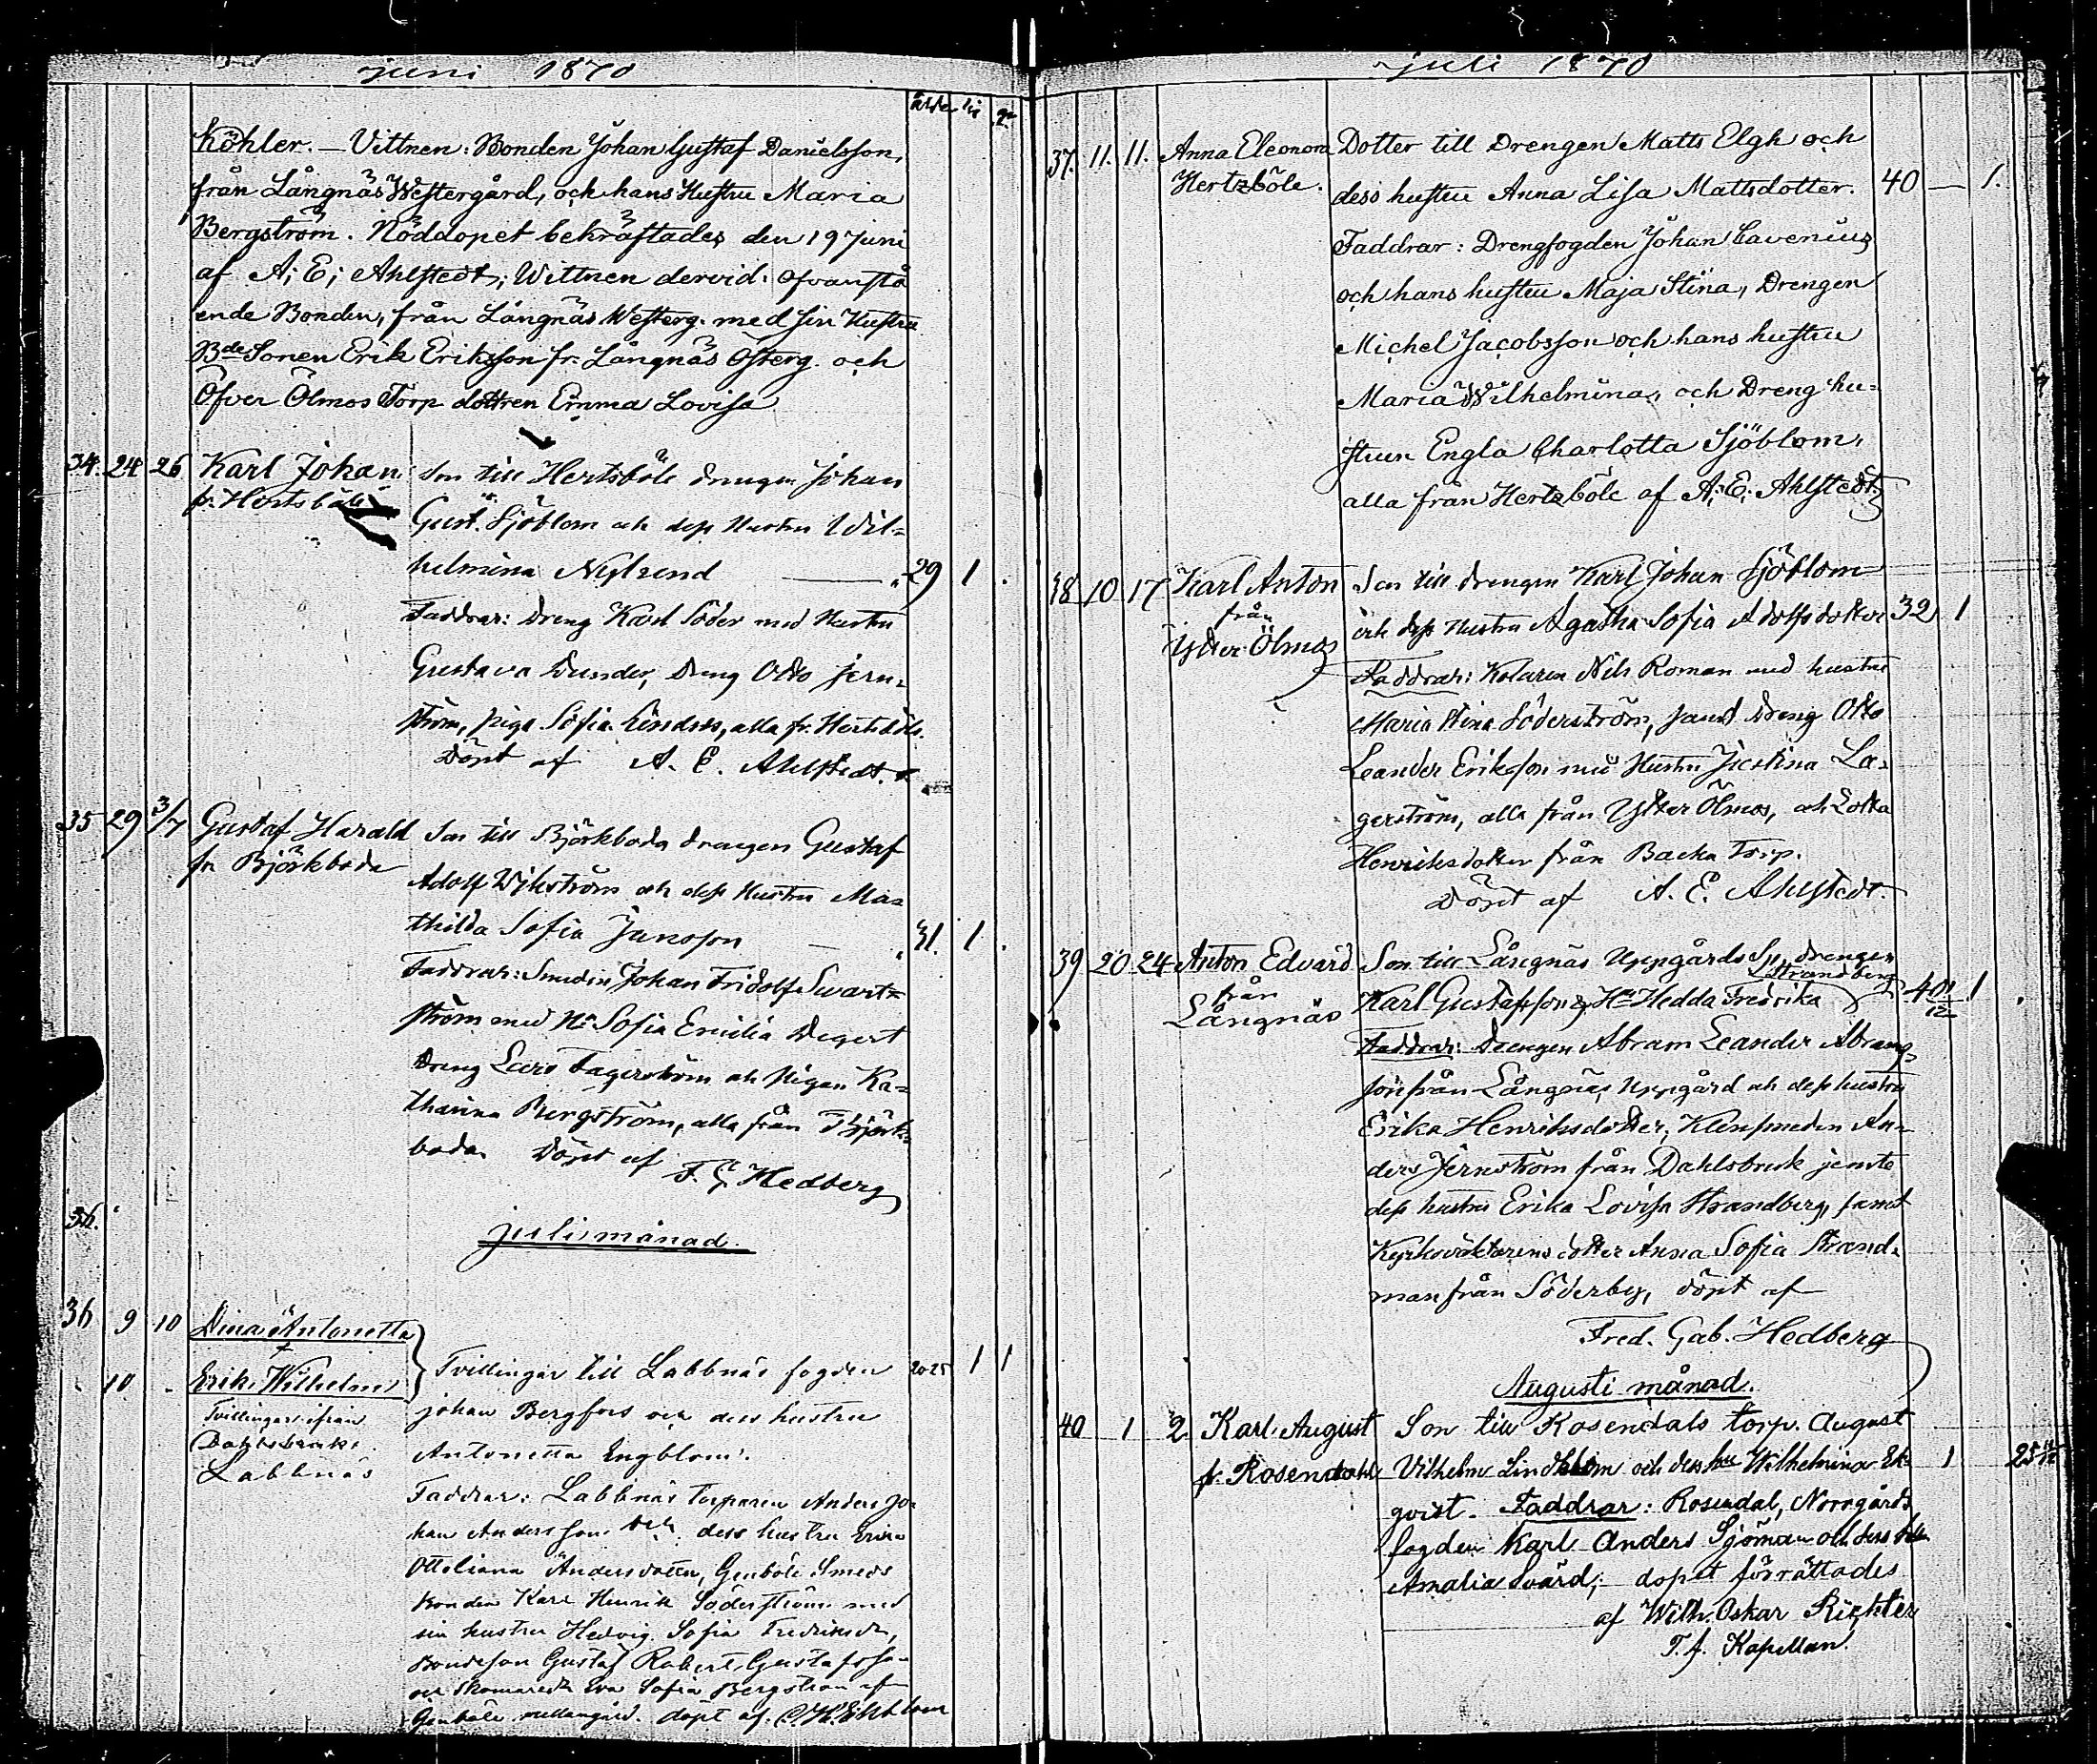 juni 1870
ålder
Köhler. — Vittnen: Bonden Johan Gustaf Danielsson,
från Långnäs Westergård, och hans Hustru Maria
Bergström. Nöddopet bekräftades den 19 Juni
af A; E; Ahlstedt; Wittnen dervid: ofvanstå
ende Bonden, från Långnäs Westerg. med sin Hustru
Bde Sonen Erik Eriksson fr. Långnäs Österg. och
Öfver Ölmos Torp dottren Emma Lovisa
34. 24 26 Karl Johan Son till Hertsböle drengen Johan
fr. Hertsböle
Gust. Sjöblom och dess Hustru Wil=
helmina Nylund — 29 1.
Faddrar: Dreng Karl Söder med Hustru
Gustava Sunder, Dreng Otto Jern=
ström, piga Sofia Lindros, alla fr. Hertsböle.
Döpt af A. E. Ahlstedt.
35 29 3/7 Gustaf Harald Son till Björkboda drengen Gustaf
fr Björkboda
Adolf Wikström och dess Hustru Ma=
thilda Sofia Jansson — 31. 1.
Faddrar: Smeden Johan Fridolf Swart=
ström med Hu Sofia Emilia Degert
Dreng Lars Fagerström och Pigan Ka=
tharina Bergström, alla från Björk=
boda. Döpt af F. G Hedberg
36.
juli månad.
36 9 10 Dina Antonetta
" 10 " Erik Wilhelm Tvillingar till Labbnäs fogden 20-25 1 1
Tvillingar ifrån
Dahlsbruks
Labbnäs
Johan Bergfors och dess hustru
Antonetta Engblom.
Faddrar: Labbnäs Torparen Anders Jo=
han Andersson och dess hustru Erika
Ottoliana Andersdotter, Genböle Smeds
bonden Karl Henrik Söderström med
sin hustru Hedvig Sofia Fredriksdr,
bondeson Gustaf Robert Gustafsson
och Eva Sofia Bergström af
Genböle mellangård. döpt af.
juli 1870
37. 11. 11. Anna Eleonora Dotter till Drengen Matts Elgh och
Hertzböle. dess hustru Anna Lisa Mattsdotter. 40 — 1.
Faddrar: Drengfogden Johan Cavenius
och hans hustru Maja Stina, Drengen
Michel Jacobsson och hans hustru
Maria Wilhelmina, och Dreng hu=
strun Engla Charlotta Sjöblom,
alla från Hertzböle af A; E; Ahlstedt
38 10 17 Karl Anton Son till drengen Karl Johan Sjöblom
från
Ytter Ölmos
och dess Hustru Agatha Sofia Adolfsdotter 32 1
Faddrar: Kolaren Nils Roman med hustru
Maria Stina Söderström, samt Dreng Otto
Leander Eriksson med Hustru Justina La=
gerström, alla från Ytter Ölmos, och Lotta
Henriksdotter från Backa Torp.
Döpt af A. E. Ahlstedt.
39 20 24 Anton Edvard Son till Långnäs Uppgårds drengen
från
Långnäs
Strandberg
Karl Gustafsson & Hu Hedda Fredrika 40 1/12 1
Faddrar: Drengen Abram Leander Abrams=
son från Långnäs Uppgård och dess hustru
Erika Henriksdotter, Klensmeden An=
ders Jernström från Dahlsbruk jemte
dess hustru Erika Lovisa Strandberg, samt
Kyrkoväktarens dotter Anna Sofia Strand=
man från Söderby, döpt af
Fred. Gab. Hedberg
Augusti månad.
40 1 2 Karl August Son till Rosendals torp. August
fr. Rosendahl Vilhelm Lindblom och dess hu Wilhelmina Ek= 1 25
qvist. Faddrar: Rosendal, Norrgårds
fogden Karl Anders Sjöman och dess hu
Amalia Svärd; dopet förrättades
af Wilh. Oskar Richter
T. f. Kapellan.